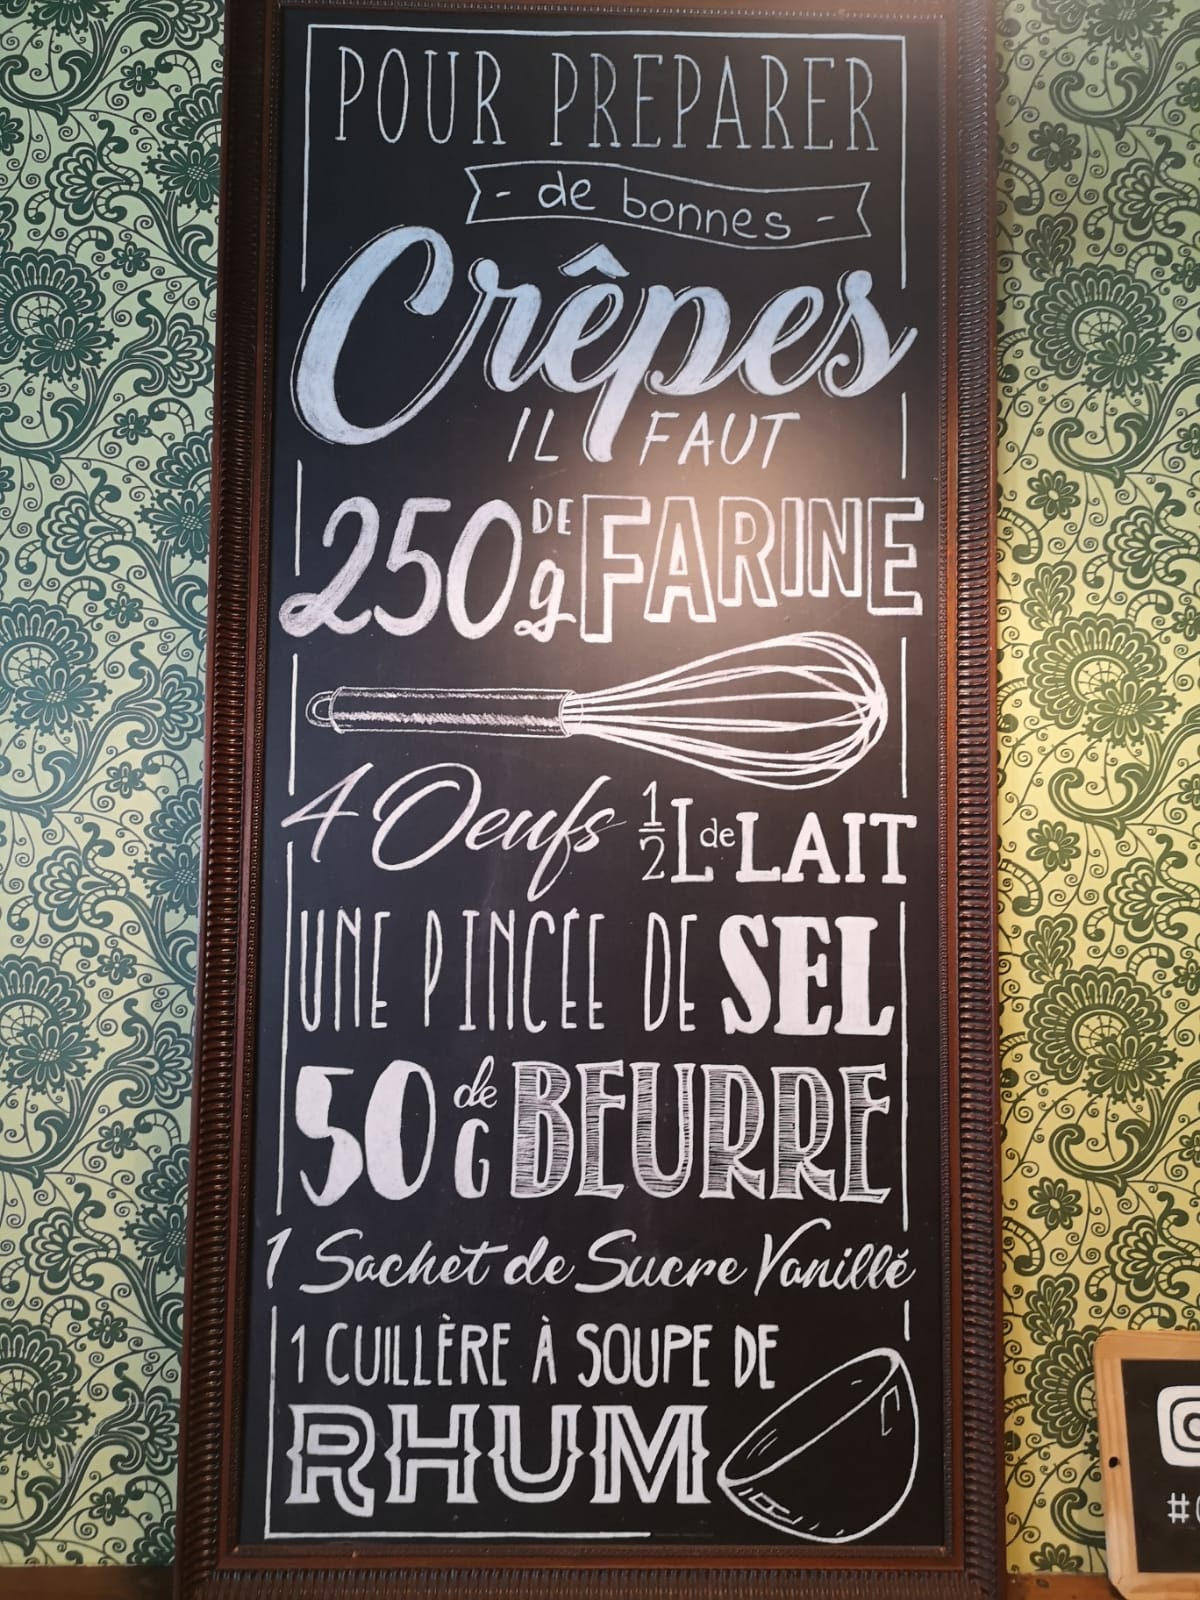 POUR PREPARER
- de bonnes -
Crêpes
IL FAUT
250g DE FARINE
4 Oeufs 1/2 L de LAIT
UNE PINCÉE DE SEL
50 G de BEURRE
1 Sachet de Sucre Vanillé
1 CUILLÈRE À SOUPE DE
RHUM
#